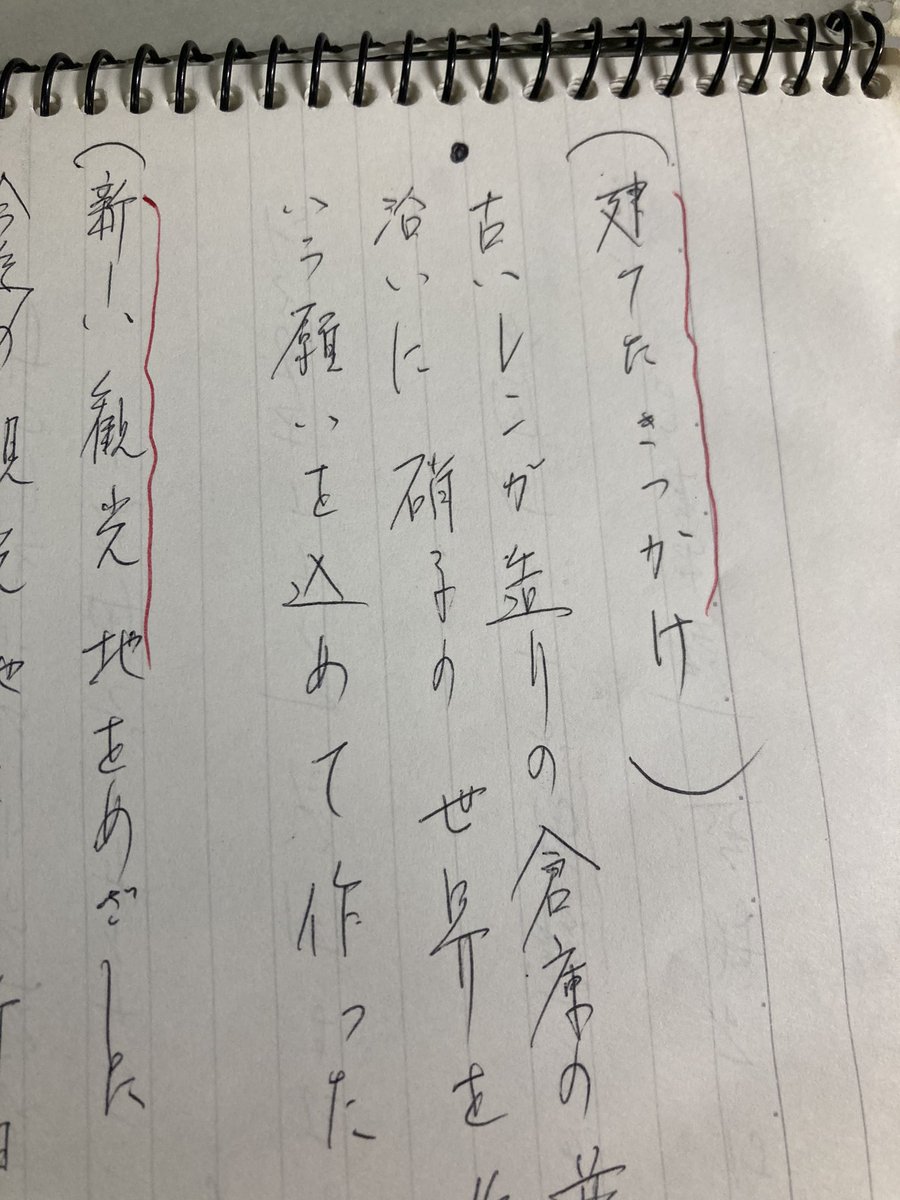 (建てたきっかけ)
古いレンガ造りの倉庫の
沿いに硝子の世界を
いう願いを込めて作った
(新しい観光地をめざした